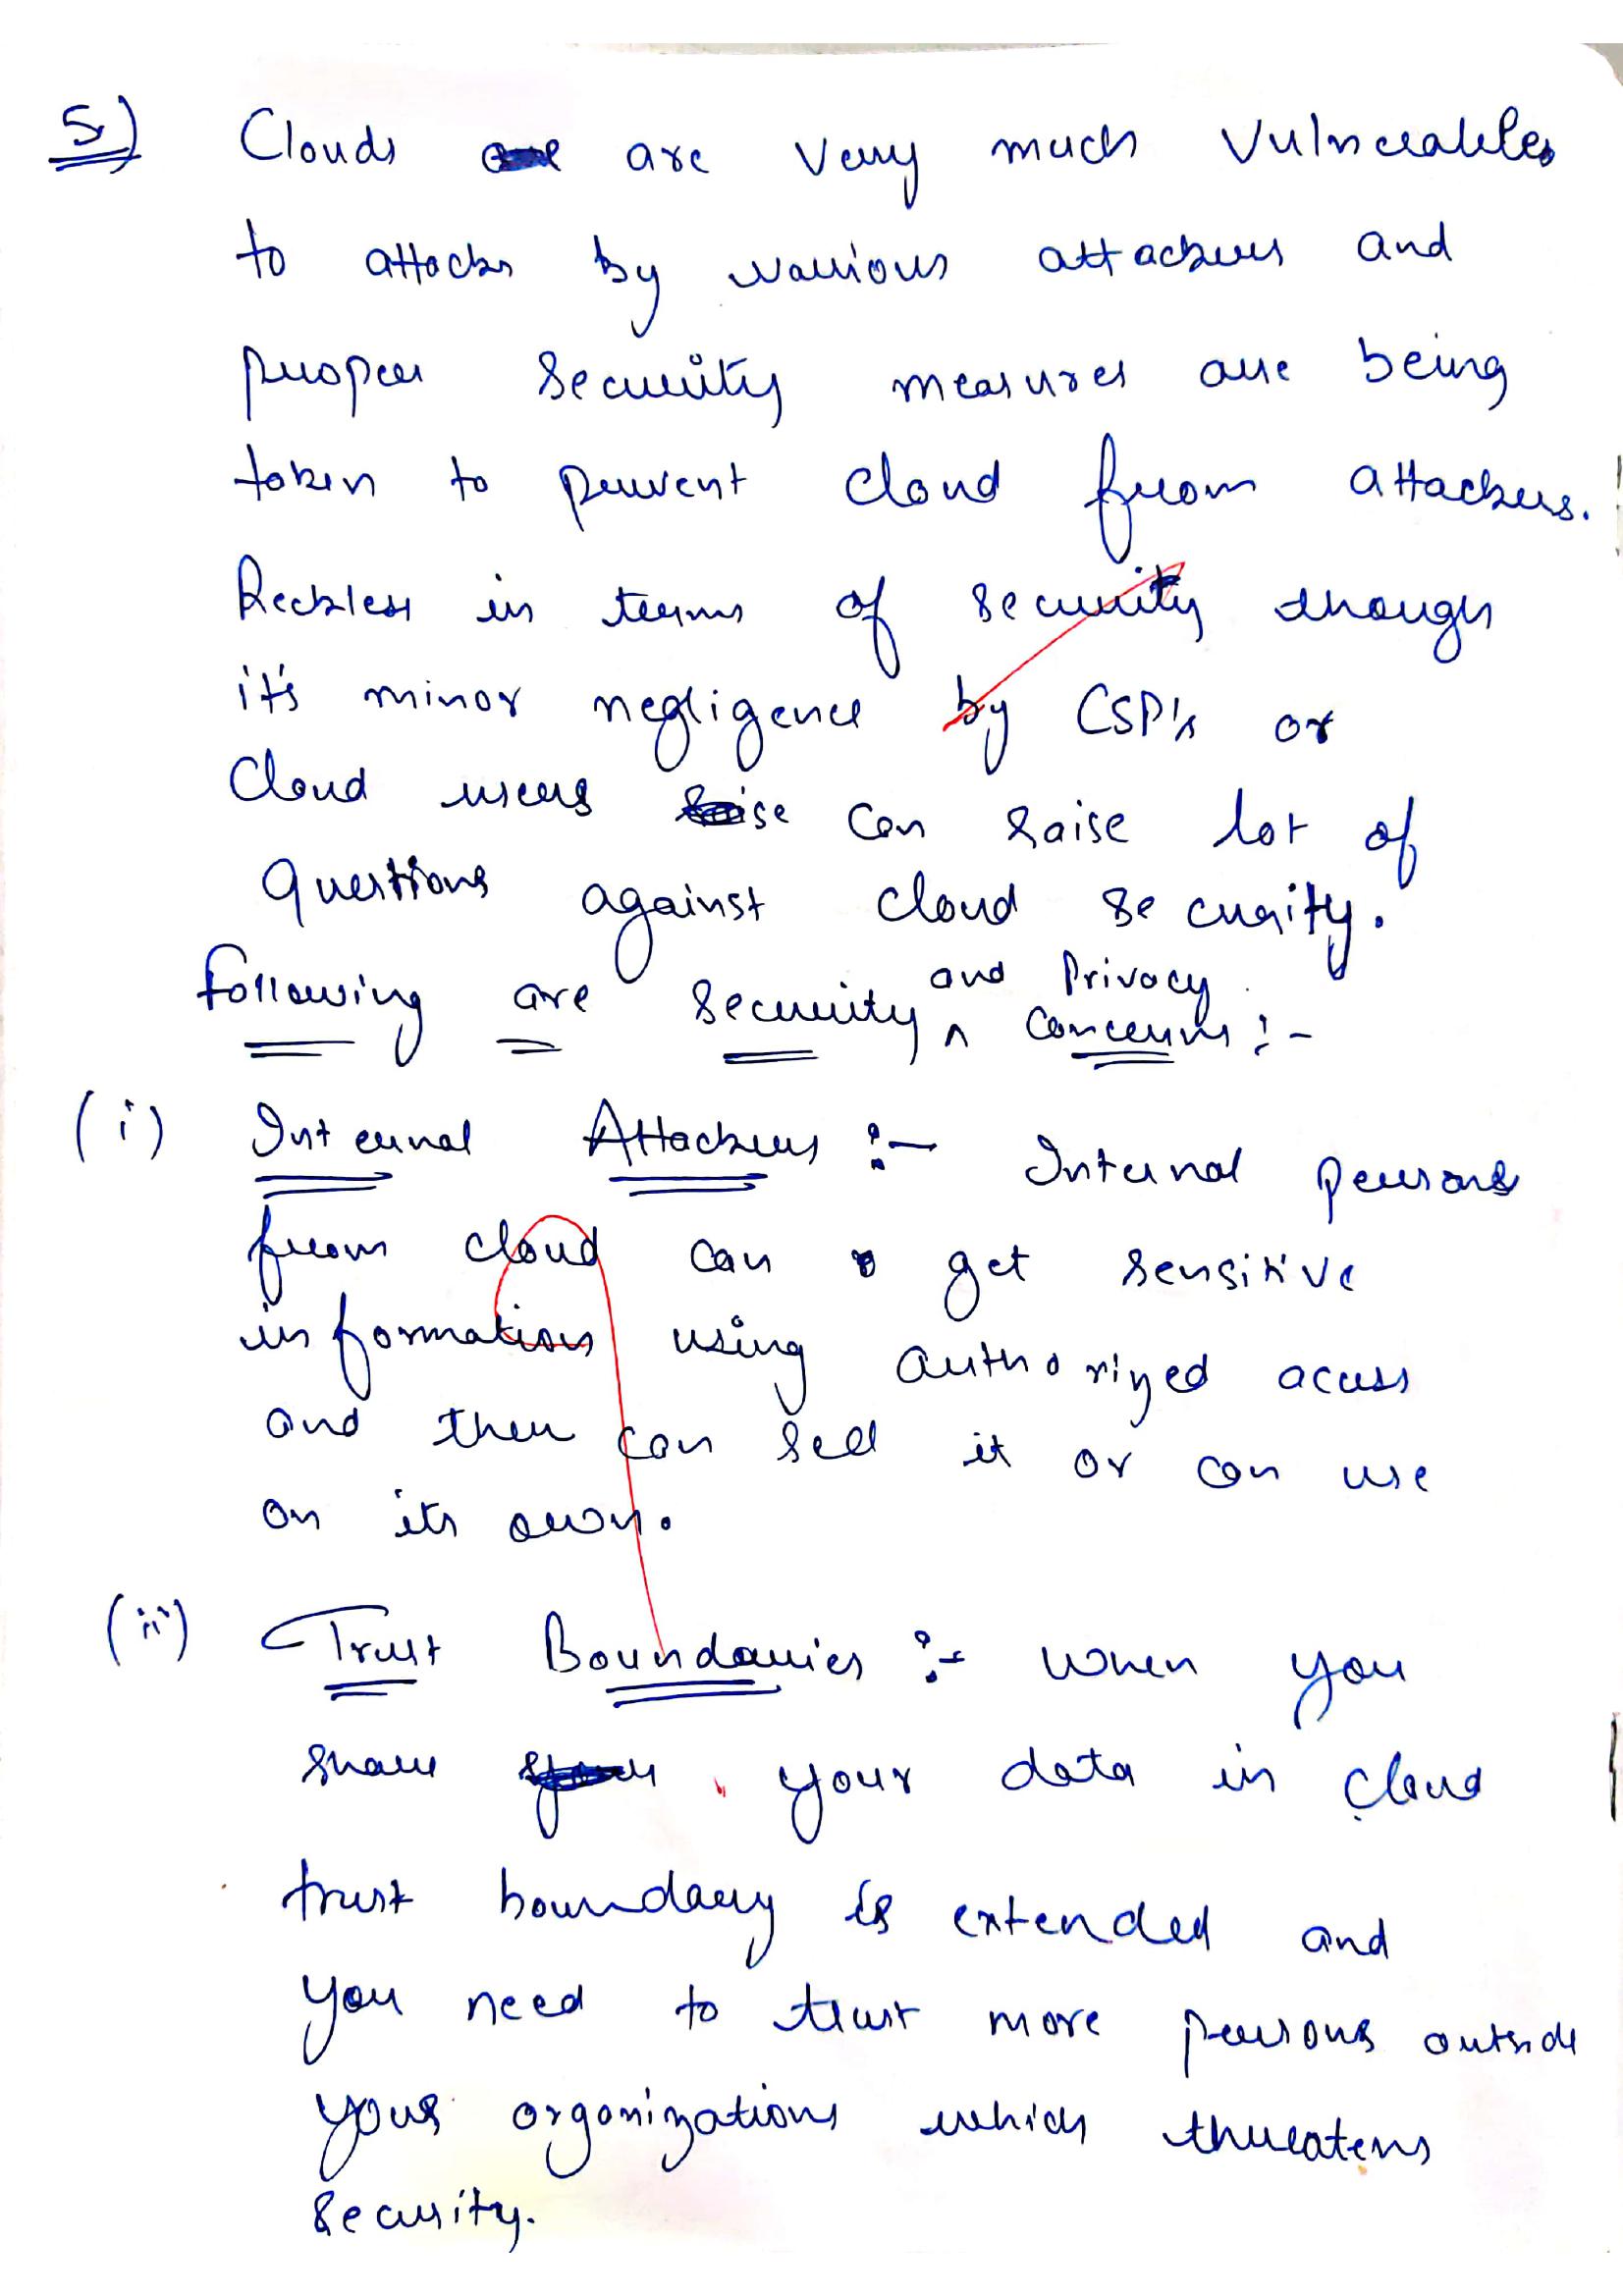 5.) Clouds are very much vulnerable
to attacks by various attackers and
proper security measures are being
taken to prevent cloud from attackers.
Reckless in terms of security though
it's minor negligence by CSP's or
Cloud users can raise lot of
questions against cloud security.
Following are security and Privacy concerns :-
(i) Internal Attackers :- Internal persons
from cloud can get sensitive
information using authorized access
and then can sell it or can use
on its own.
(ii) Trust Boundaries :- When you
share your data in cloud
trust boundary is extended and
you need to trust more persons outside
your organizations which threatens
security.